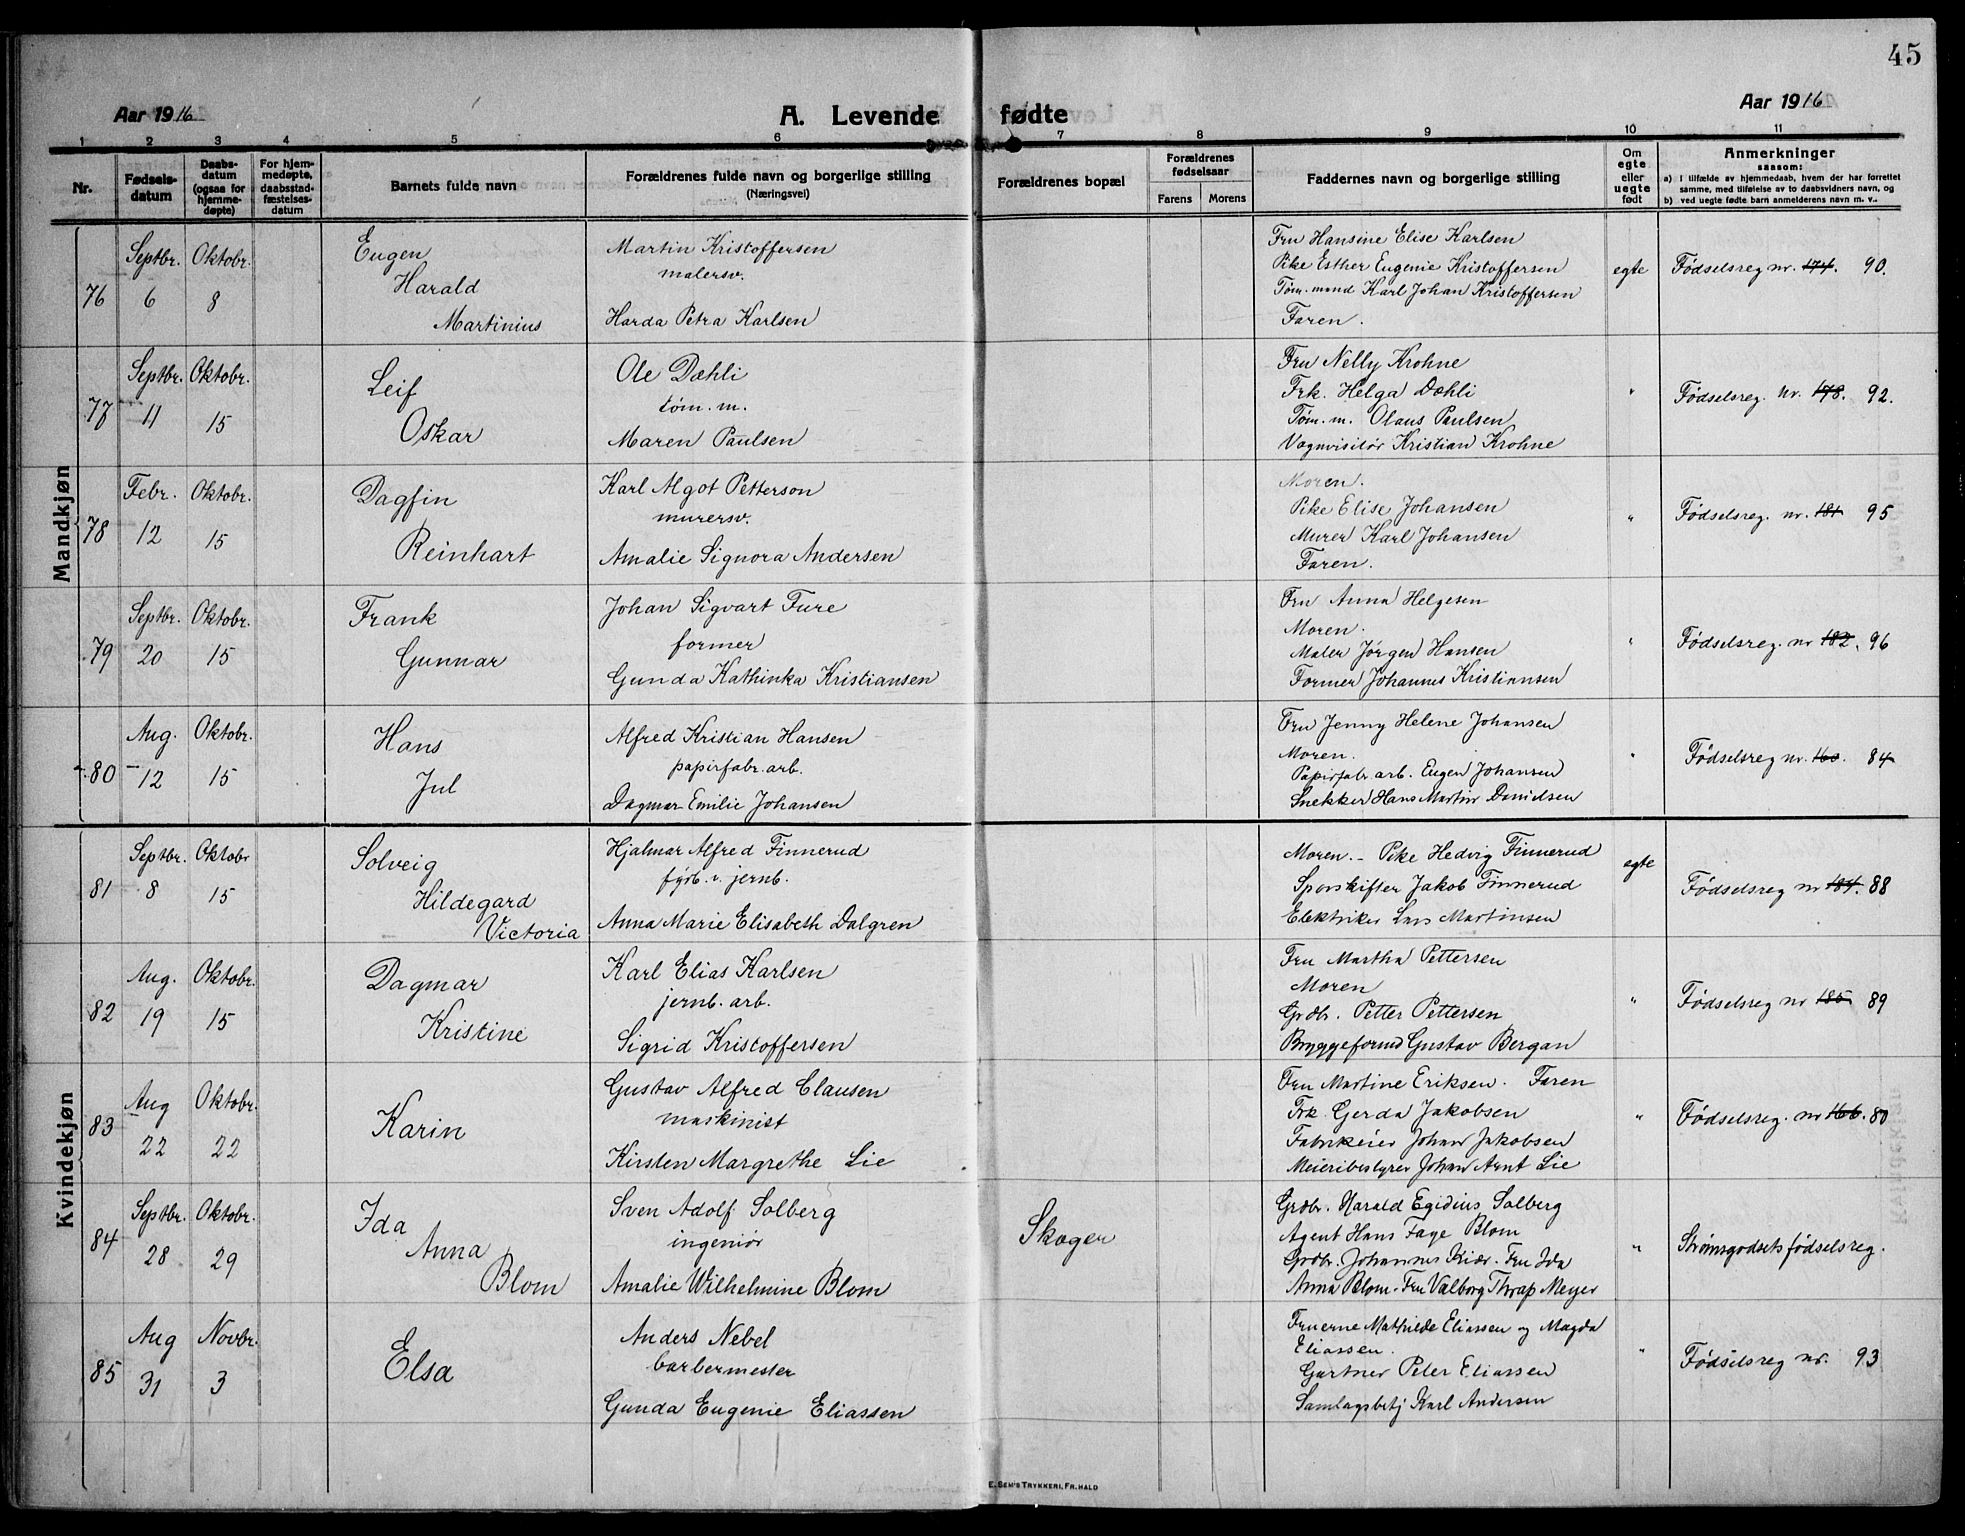 45
Aar 1916
A. Levende fødte
Aar 1916
1 2 3 4 5 6 7 8 9 10 11
Nr.
Fødsels-
datum
Daabs-
datum
(ogsaa for
hjemme-
døpte)
For hjem-
medøpte,
daabsstad-
fæstelses-
datum
Barnets fulde navn
Forældrenes fulde navn og borgerlige stilling
(Næringsvei)
Forældrenes bopæl
Forældrenes
fødselsaar
Farens Morens
Faddernes navn og borgerlige stilling
Om
egte
eller
uegte
født
Anmerkninger
saasom:
a) I tilfælde av hjemmedaab, hvem der har forrettet
samme, med tilføielse av to daabsvidners navn, og
b) ved uegte fødte barn anmelderens navn m. v..
Mandkjøn
76
Septbr.
6
Oktobr.
8
Eugen
Harald
Martinius
Martin Kristoffersen
malersv.
Harda Petra Karlsen
Fru Hansine Elise Karlsen
Pike Esther Eugenie Kristoffersen
Tøm.mand Karl Johan Kristoffersen
Faren.
egte
Fødselsreg nr. 174. 90.
77
Septbr.
11
Oktobr.
15
Leif
Oskar
Ole Dæhli
tøm. m.
Maren Paulsen
Fru Nelly Krohne
Frk. Helga Dæhli
Tøm. m. Olaus Paulsen
Vognvisitør Kristian Krohne
"
Fødselsreg. nr. 178. 92.
78
Febr.
12
Oktobr.
15
Dagfin
Reinhart
Karl Algot Petterson
murersv.
Amalie Signora Andersen
Moren.
Pike Elise Johansen
Murer Karl Johansen
Faren.
"
Fødselsreg. nr. 181 95
79
Septbr.
20
Oktobr.
15
Frank
Gunnar
Johan Sigvart Fure
former
Gunda Kathinka Kristiansen
Fru Anna Helgesen
Moren.
Maler Jørgen Hansen
Former Johannes Kristiansen
"
Fødselsreg. nr 182. 96
80
Aug.
12
Oktobr.
15
Hans
Jul
Alfred Kristian Hansen
papirfabr. arb.
Dagmar Emilie Johansen
Fru Jenny Helene Johansen
Moren.
Papirfabr arb. Eugen Johansen
Snekker Hans Martin Danielsen
"
Fødselsreg nr. 160. 84
Kvindekjøn
81
Septbr.
8
Oktobr
15
Solveig
Hildegard
Victoria
Hjalmar Alfred Finnerud
fyrb. v. jernb.
Anna Marie Elisabeth Dalgren
Moren. - Pike Hedvig Finnerud
Sporskifter Jakob Finnerud
Elektriker Lars Martinsen
egte
Fødselsreg nr 184. 88
82
Aug.
19
Oktobr.
15
Dagmar
Kristine
Karl Elias Karlsen
jernb. arb.
Sigrid Kristoffersen
Fru Martha Pettersen
Moren
Grdbr. Petter Pettersen
Bryggeformd Gustav Bergan
"
Fødselsreg nr 185 89
83
Aug
22
Oktobr.
22
Karin
Gustav Alfred Clausen
maskinist
Kirsten Margrethe Lie
Fru Martine Eriksen. Faren
Frk. Gerda Jakobsen
Fabrikeier Johan Jakobsen
Meieribestyrer Johan Arnt Lie
"
Fødselsreg. nr 166. 80
84
Septbr.
28
Oktobr.
29
Ida
Anna
Blom
Sven Adolf Solberg
ingeniør
Amalie Wilhelmine Blom
Skoger
Grdbr. Harald Egidius Solberg
Agent Hans Faye Blom
Grdbr. Johannes Kiær. Fru Ida
Anna Blom. Fru Valborg Thrap Meyer
"
Strømsgodsets fødselsreg.
85
Aug
31
Novbr.
3
Elsa
Anders Nebel
barbermester
Gunda Eugenie Eliassen
Fruerne Mathilde Eliassen og Magda
Eliassen.
Gartner Peter Eliassen
Samlagsbetj Karl Andersen
"
Fødselsreg nr. 93
E. SEM'S TRYKKERI, FR.HALD